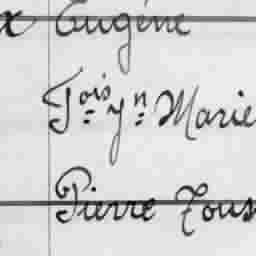 x Eugène
Fois Jn Marie
Pierre Tous